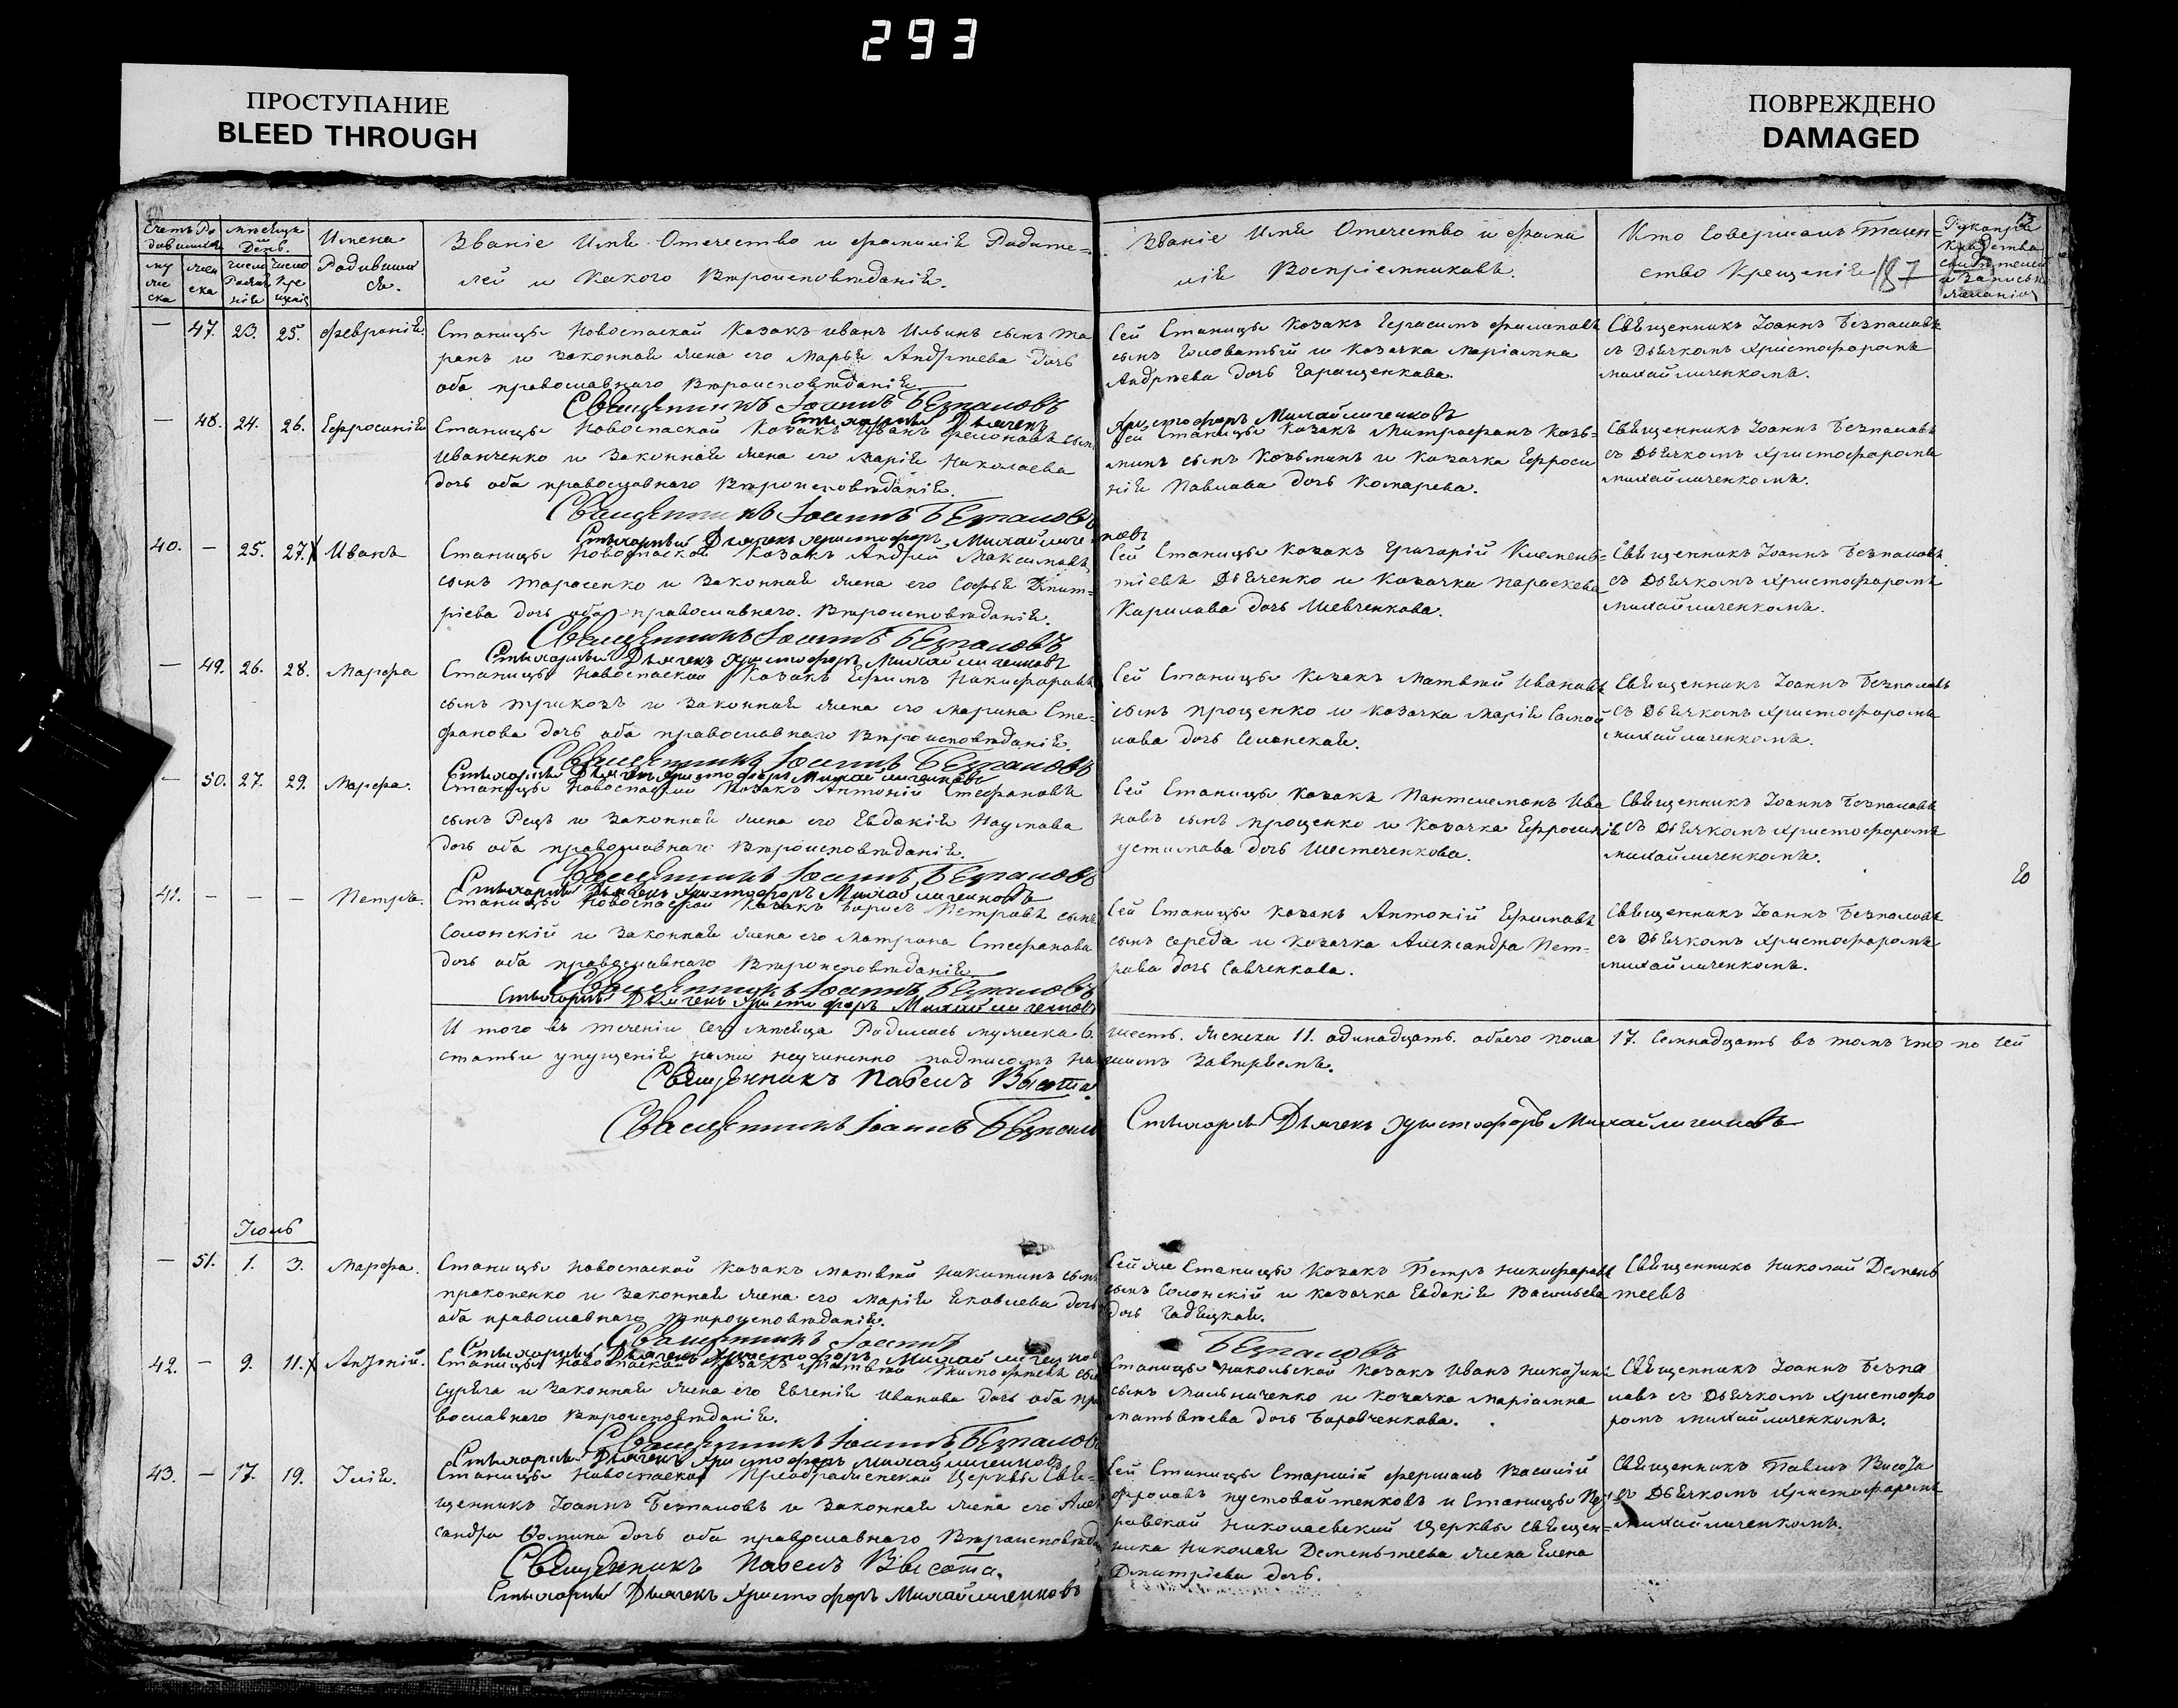 293
ПРОСТУПАНИЕ
BLEED THROUGH
ПОВРЕЖДЕНО
DAMAGED
Счетъ Ро
дившихся
мѣсяцъ
и
День.
Имена
Родивших
ся.
му
же
ска
жен
ска
число
Рожде
нія
число
кре
щенія
Званіе Имя Отечество и фамилія Родите=
лей и какого Вѣроисповѣданія.
Званіе Имя Отечество и фами
лія Воспріемниковъ.
Кто Совершалъ Таин=
ство Крещенія
187
13
Рукопри
кладство
свидѣтелей
о записи по
желанію
— 47. 23. 25. Февронія.
Станицы Новоспаской Козакъ Иванъ Ильинъ сынъ Та
ранъ и Законная жена его Марья Андрѣева дочь
оба православнаго Вѣроисповѣданія.
Священникъ Іоаннъ Безпаловъ
Стихарный Дьячекъ
Христофоръ Михайличенковъ
Сей Станицы Козакъ Герасимъ Филиповъ
сынъ Головатый и Козачка Маріамна
Андрѣева дочь Геращенкова.
Священникъ Іоаннъ Безпаловъ
съ Дьячкомъ Христофоромъ
Михайличенкомъ.
— 48. 24. 26. Ефросинія
Станицы Новоспаской Козакъ Иванъ сынъ
Иванченко и Законная жена его Марія Николаева
дочь оба православнаго Вѣроисповѣданія.
Священникъ Іоаннъ Безпаловъ
Стихарный Дьячекъ Христофоръ Михайличенковъ
Сей Станицы Козакъ Митрофанъ Козь=
минъ сынъ Козьминъ и Козачка Ефроси
нія Павлова дочь Комарева.
Священникъ Іоаннъ Безпаловъ
съ Дьячкомъ Христофоромъ
Михайличенкомъ.
40. — 25. 27. Иванъ
Станицы Новоспаской Козакъ Андрей Максимовъ
сынъ Тарасенко и Законная жена его Софья Дмит=
ріева дочь оба православнаго Вѣроисповѣданія.
Священникъ Іоаннъ Безпаловъ
Стихарный Дьячекъ Христофоръ Михайличенковъ
Сей Станицы Козакъ Григорій Клемень=
тіевъ Дяченко и Козачка Параскева
Карилова дочь Шевченкова.
Священникъ Іоаннъ Безпаловъ
съ Дьячкомъ Христофоромъ
Михайличенкомъ.
— 49. 26. 28. Марфа
Станицы Новоспаской Козакъ Ефимъ Никифоровъ
сынъ Трикозъ и Законная жена его Марина Сте=
фанова дочь оба православнаго Вѣроисповѣданія.
Священникъ Іоаннъ Безпаловъ
Стихарный Дьячекъ Христофоръ Михайличенковъ
Сей Станицы Козакъ Матвѣй Ивановъ
сынъ Проценко и Козачка Марія Самой
лова дочь Солонская.
Священникъ Іоаннъ Безпаловъ
съ Дьячкомъ Христофоромъ
Михайличенкомъ.
— 50. 27. 29. Марфа.
Станицы Новоспаской Козакъ Антоній Стефановъ
сынъ Рецъ и Законная жена его Евдокія Наумова
дочь оба православнаго Вѣроисповѣданія.
Священникъ Іоаннъ Безпаловъ
Стихарный Дьячекъ Христофоръ Михайличенковъ
Сей Станицы Козакъ Пантелемонъ Ива
новъ сынъ Проценко и Козачка Ефросинія
Устимова дочь
Священникъ Іоаннъ Безпаловъ
съ Дьячкомъ Христофоромъ
Михайличенкомъ.
41. — — — Петръ.
Станицы Новоспаской Козакъ Борисъ Петровъ сынъ
Солонскій и Законная жена его Матрона Стефанова
дочь оба православнаго Вѣроисповѣданія.
Священникъ Іоаннъ Безпаловъ
Стихарный Дьячекъ Христофоръ Михайличенковъ
Сей Станицы Козакъ Антоній Ефимовъ
сынъ Середа и Козачка Александра Пет=
рова дочь Савченкова.
Священникъ Іоаннъ Безпаловъ
съ Дьячкомъ Христофоромъ
Михайличенкомъ.
И того въ теченіи сего мѣсяца Родилось мужеска 6. шесть. женска 11. одинадцать. обоего пола 17. Семнадцать въ томъ что по сей
статьи упущенія нами неучиненно подписомъ нашимъ Завѣряемъ.
Священникъ Павелъ Высота.
Священникъ Іоаннъ Безпаловъ
Стихарный Дьячекъ Христофоръ Михайличенковъ
Іюль
— 51. 1. 3. Марфа.
Станицы Новоспаской Козакъ Матвѣй Никитинъ сынъ
Прокопенко и Законная жена его Марія Яковлева дочь
оба православнаго Вѣроисповѣданія.
Священникъ Іоаннъ Безпаловъ
Стихарный Дьячекъ Христофоръ Михайличенковъ
Сей же Станицы Козакъ Петръ Никифоровъ
сынъ Солонскій и Козачка Евдокія Васильева
дочь Гадяцкая.
Священникъ Николай Демень
тѣевъ
42. — 9. 11. Антоній.
Станицы Новоспаской Козакъ Матвѣй Тимофѣевъ сынъ
и Законная жена его Евгенія Иванова дочь оба пра
вославнаго Вѣроисповѣданія.
Священникъ Іоаннъ Безпаловъ
Стихарный Дьячекъ Христофоръ Михайличенковъ
Станицы Никольской Козакъ Иванъ
сынъ Мильниченко и Козачка Маріамна
Матвѣева дочь Боровченкова.
Священникъ Іоаннъ Безпа
ловъ съ Дьячкомъ Христофо
ромъ Михайличенкомъ.
43. — 17. 19. Ілія.
Станицы Новоспаской Преображенской Церквы Свя=
щенникъ Іоаннъ Безпаловъ и Законная жена его Алек
сандра Фомина дочь оба православнаго Вѣроисповѣда
Священникъ Павелъ Высота.
Стихарный Дьячекъ Христофоръ Михайличенковъ
Сей Станицы Старшій Фершалъ Василій
Фроловъ Пустовойтенковъ и Станицы Пет
ровской Николаевской Церквы Священ=
ника Николая Деменьтѣева жена Елена
Дмитріева дочь.
Священникъ Павелъ Висота
съ Дьячкомъ Христофоромъ
Михайличенкомъ.